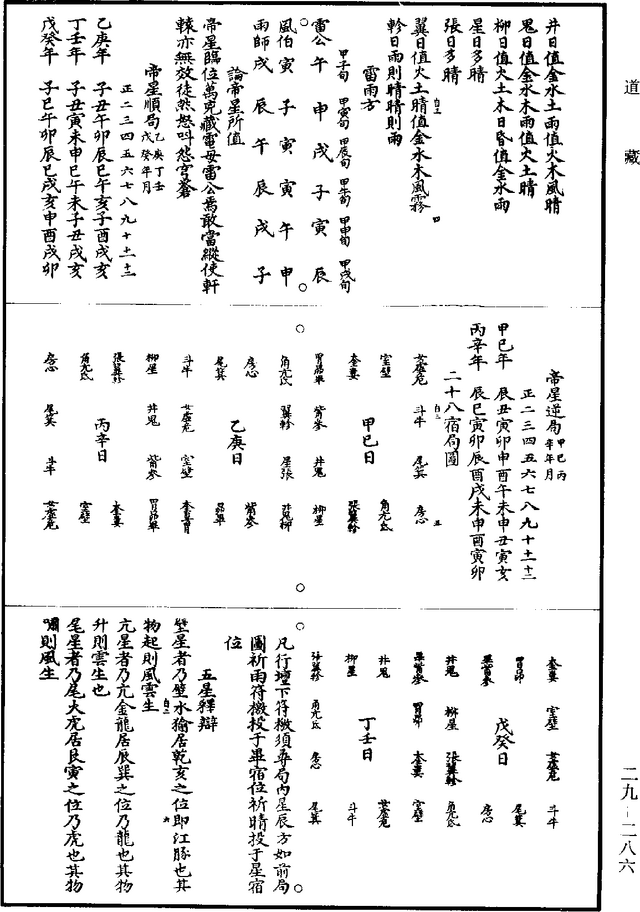 道藏
井日值金水土雨值火木風晴
鬼日值金水木雨值火土晴
柳日值火土木日昏值金水雨
星日多晴
張日多晴
翼日值火土晴值金水木風霧
軫日雨則晴晴則雨
雷雨方
甲子旬 甲寅旬 甲辰旬 甲午旬 甲申旬 甲戌旬
雷公 午 申 戌 子 寅 辰
風伯 寅 子 寅 寅 午 申
雨師 戌 辰 午 辰 戌 子
論帝星所值
帝星臨位萬兇藏電母雷公焉敢當縱使軒
轅亦無效徒然怒叫怨穹蒼
帝星順局 乙庚丁壬戊癸年月
正二三四五六七八九十十一十二
乙庚年 子丑午卯辰巳午亥子酉戌亥
丁壬年 子丑寅未申巳午未子丑戌亥
戊癸年 子巳午卯辰巳戌亥申酉戌卯
帝星逆局 甲己丙辛年月
正二三四五六七八九十十一十二
甲己年 辰丑寅卯申酉午未申丑寅亥
丙辛年 辰巳寅卯辰酉戌未申酉寅卯
二十八宿局圖
女虛危 斗牛 尾箕 房心
室壁
奎婁 甲己日 角亢氐
張翼軫
胃昴畢 觜參 井鬼 柳星
角亢氐 翼軫 星張 井鬼柳
房心 乙庚日 觜參
尾箕 昴畢
斗牛 女虛危 室壁 奎婁胃
柳星 井鬼 觜參 胃昴畢
張翼軫 奎婁
角亢氐 丙辛日 室壁
房心 尾箕 斗牛 女虛危
奎婁 室壁 女虛危 斗牛
胃昴 尾箕
畢觜參 戊癸日 房心
井鬼 柳星 張翼軫 角亢氐
畢觜參 胃昴 奎婁 室壁
井鬼 女虛危
柳星 丁壬日 斗牛
張翼軫 角亢氐 房心 尾箕
凡行壇下符檄須尋局內星辰方如前局
圖祈雨符檄投于畢宿位祈晴投于星宿
位
五星釋辯
壁星者乃壁水㺄居乾亥之位即江豚也其
物起則風雲生
亢星者乃亢金龍居辰巽之位乃龍也其物
升則雲生也
尾星者乃尾火虎居艮寅之位乃虎也其物
嘯則風生
二九—二八六